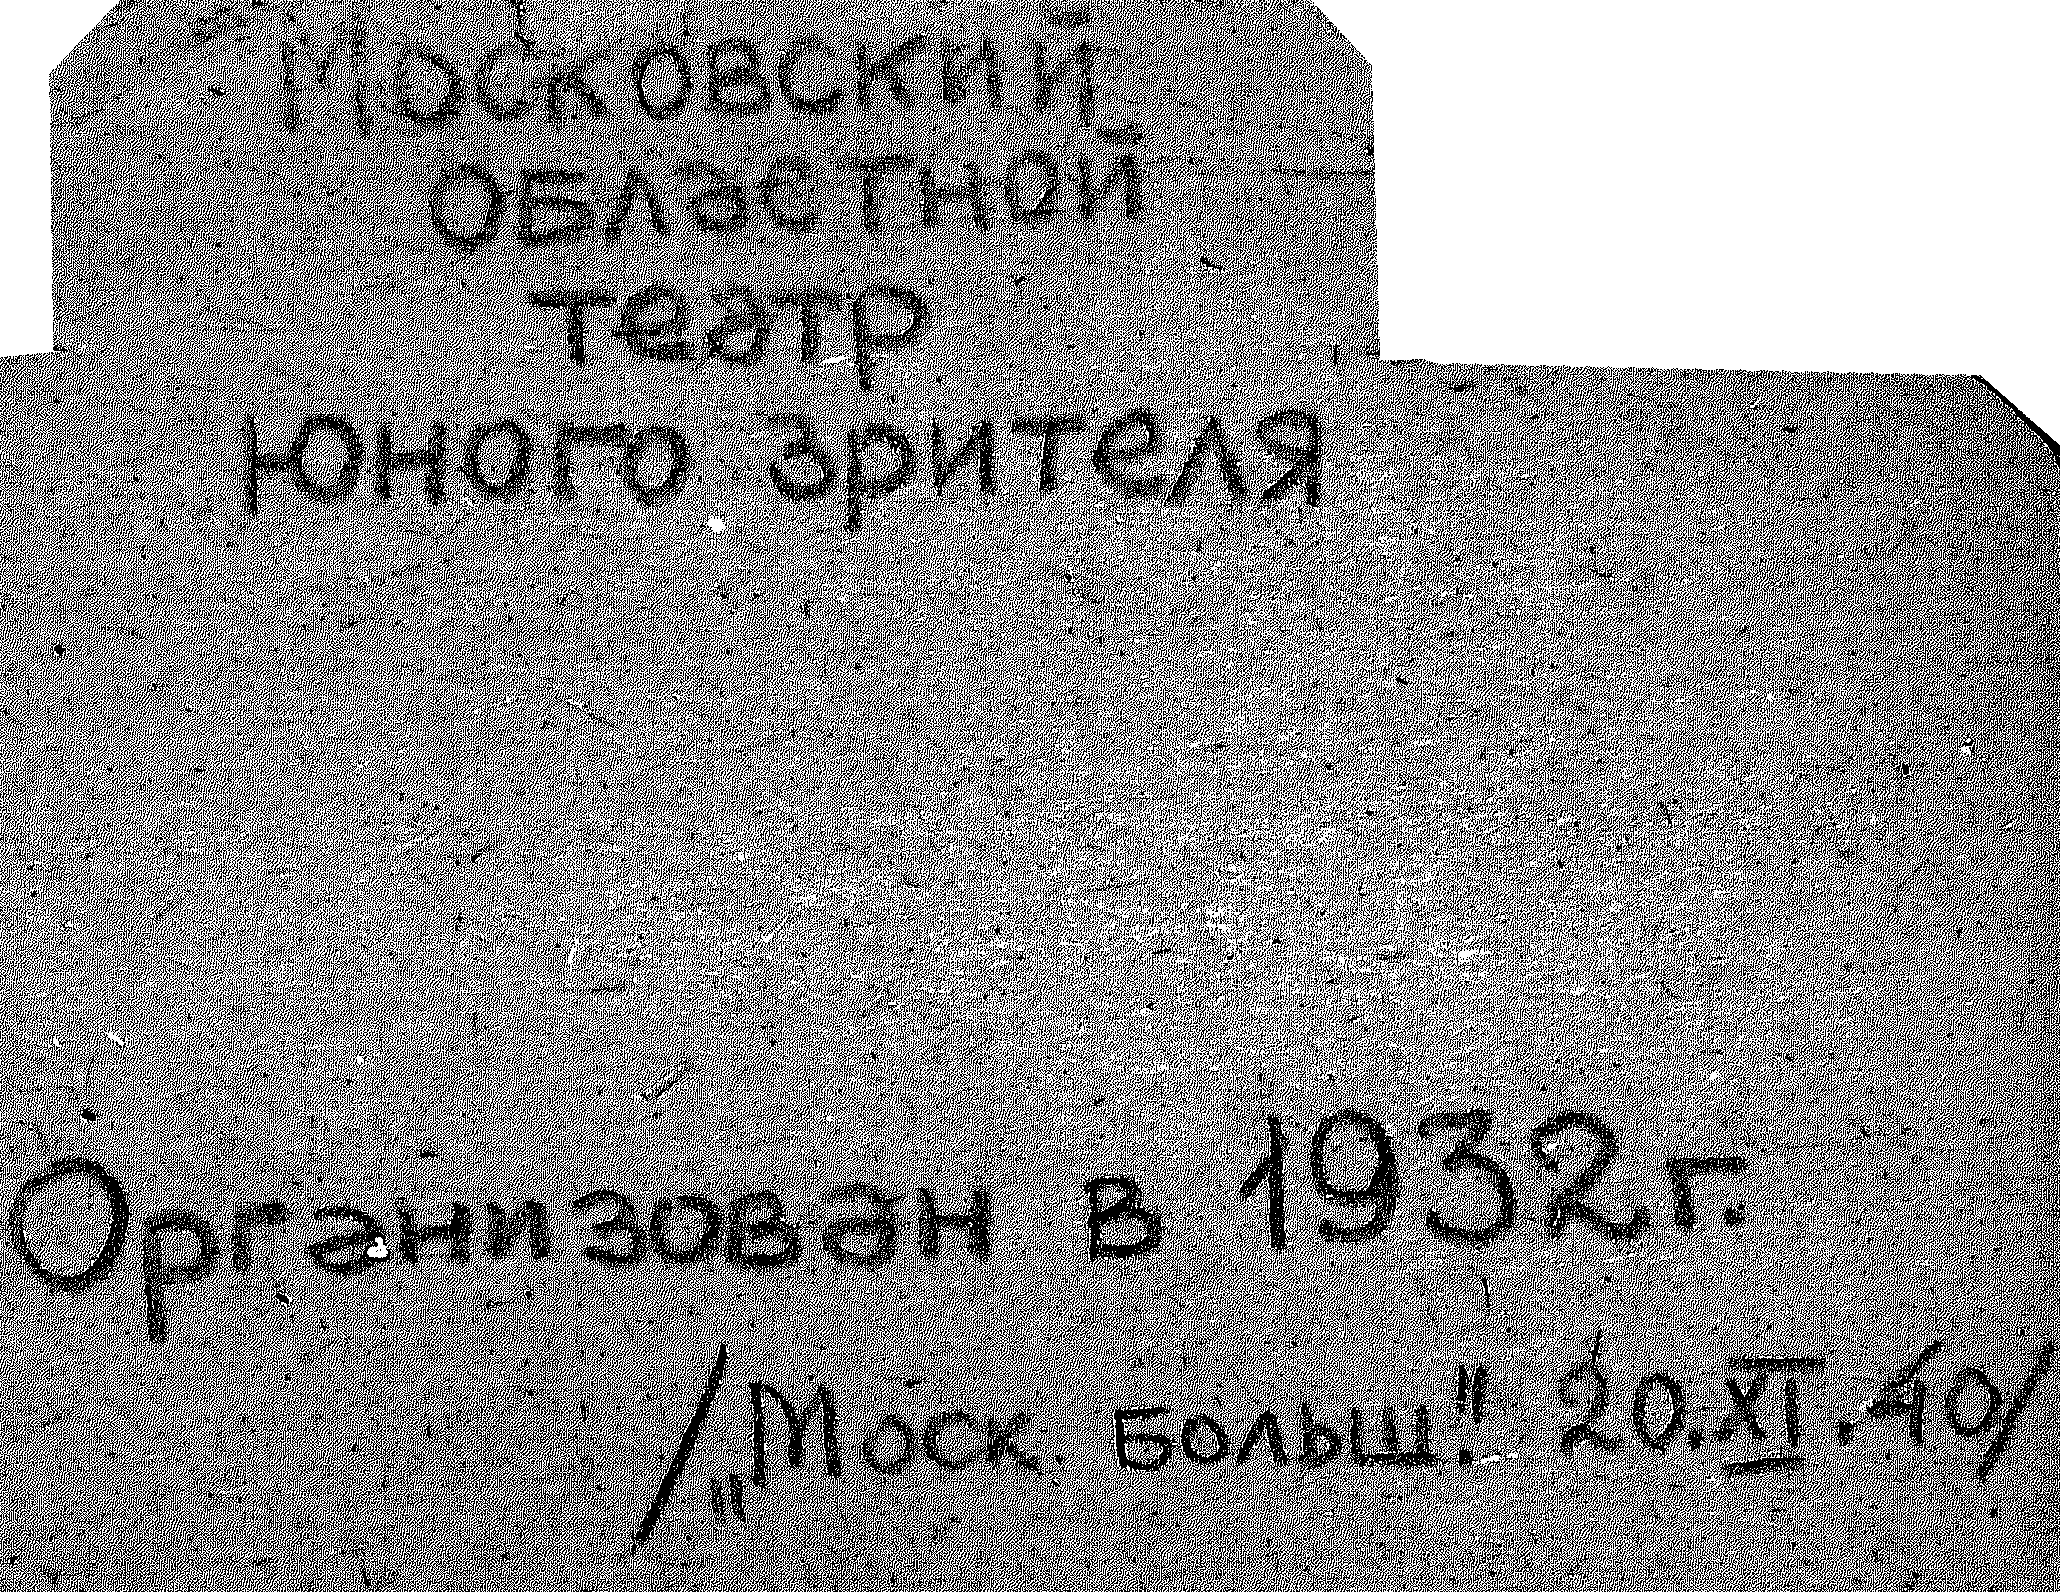 Московский
областной
театр
юного зрителя
Организован в 1932 г.
/„Моск. Больш." 20.XI.40/